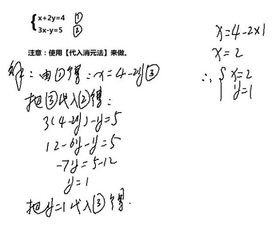 x+2y=4 ①
3x-y=5 ②
注意：使用【代入消元法】来做。
解：由①得：x=4-2y③
把③代入②得：
3(4-2y)-y=5
12-6y-y=5
-7y=5-12
y=1
把y=1代入③得：
x=4-2×1
x=2
∴{x=2
y=1